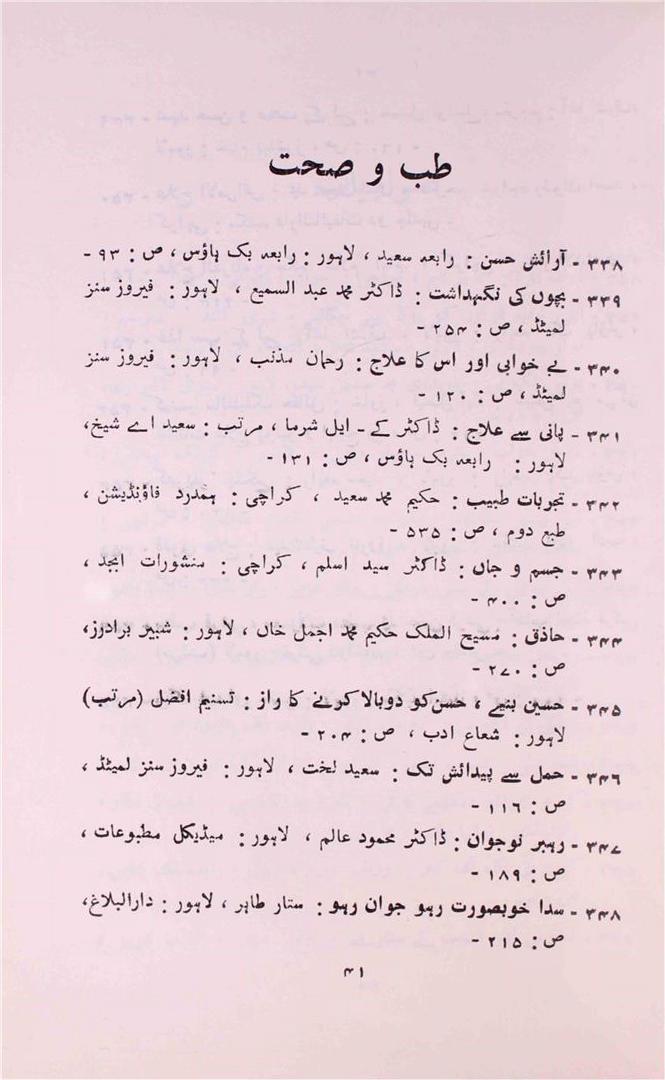 طب و صحت
۳۳۸ - آرائش حسن : رابعہ سعید ، لاہور : رابعہ بک ہاؤس ، ص : ۹۳ -
۳۳۹ - بچوں کی نگہداشت : ڈاکٹر محمد عبد السمیع ، لاہور : فیروز سنز
لمیٹڈ ، ص : ۲۵۴ -
۳۴۰ - بے خوابی اور اس کا علاج : رحمان مذنب ، لاہور : فیروز سنز
لمیٹڈ ، ص : ۱۲۰ -
۳۴۱ - پانی سے علاج : ڈاکٹر کے - ایل شرما ، مرتب : سعید اے شیخ،
لاہور : رابعہ بک ہاؤس ، ص : ۱۳۱ -
۳۴۲ - تجربات طبیب : حکیم محمد سعید ، کراچی : ہمدرد فاؤنڈیشن ،
طبع دوم ، ص : ۵۳۵ -
۳۴۳ - جسم و جاں : ڈاکٹر سید اسلم ، کراچی : منشورات ابجد ،
ص : ۴۰۰ -
۳۴۴ - حاذق : مسیح الملک حکیم محمد اجمل خاں ، لاہور : شبیر برادرز،
ص : ۲۷۰ -
۳۴۵ - حسین بنیے ، حسن کو دوبالا کرنے کا راز : تسنیم افضل (مرتب)
لاہور : شعاع ادب ، ص : ۲۰۴ -
۳۴۶ - حمل سے پیدائش تک : سعید لخت ، لاہور : فیروز سنز لمیٹڈ ،
ص : ۱۱۶ -
۳۴۷ - رہبر نوجوان : ڈاکٹر محمود عالم ، لاہور : میڈیکل مطبوعات ،
ص : ۱۸۹ -
۳۴۸ - سدا خوبصورت رہو جوان رہو : ستار طاہر ، لاہور : دارالبلاغ،
ص : ۲۱۵ -
۴۱